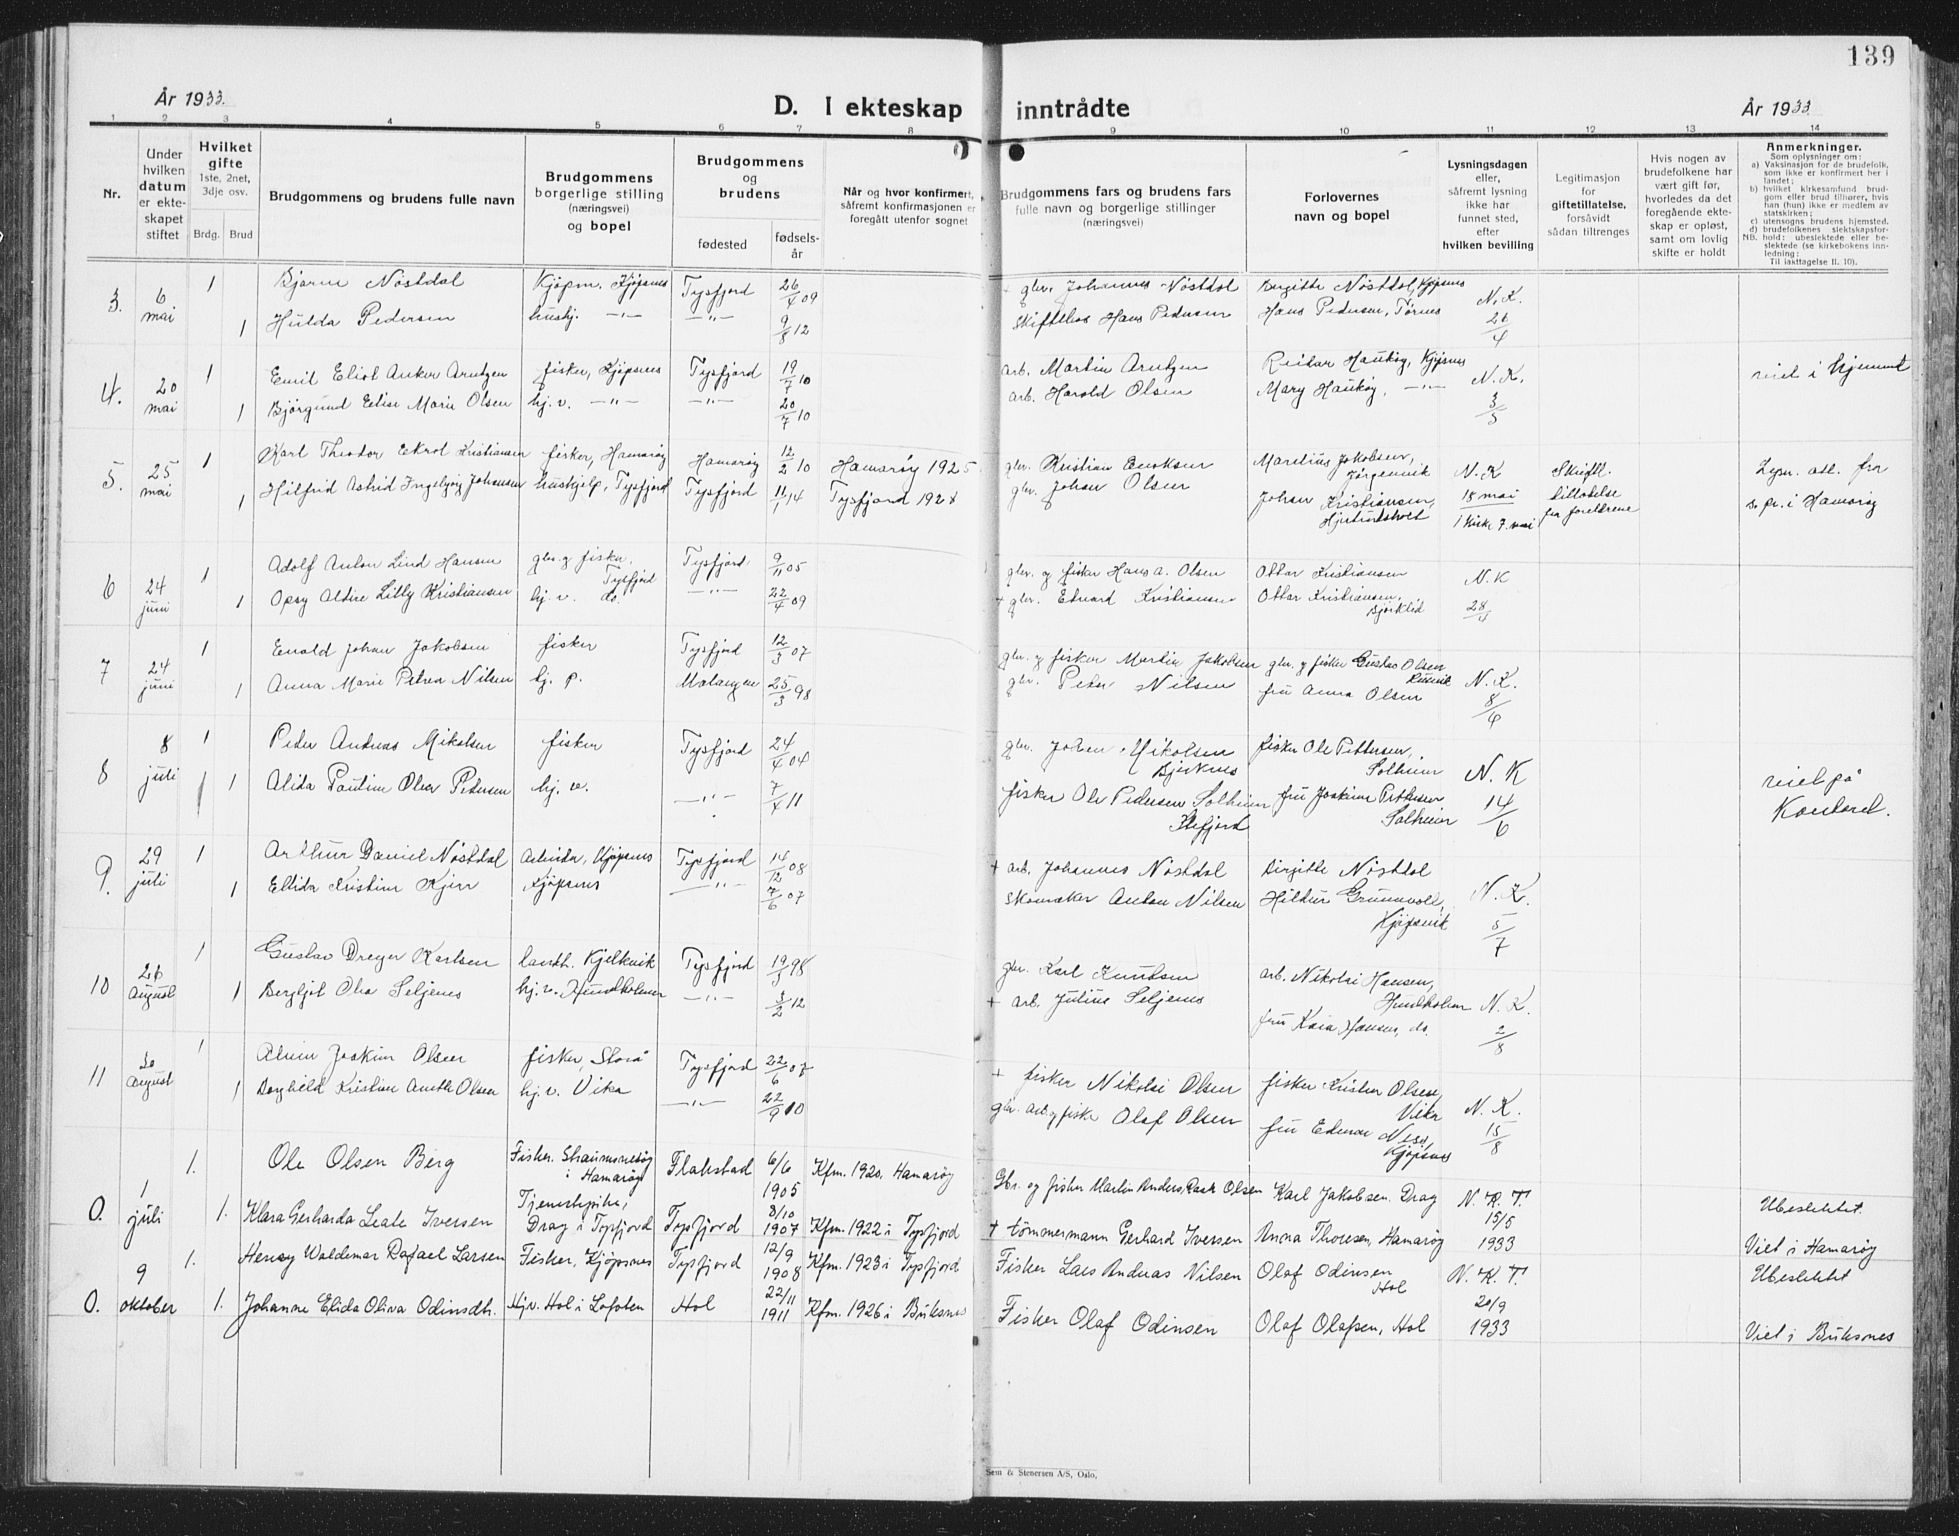 139
År 1933.
D. I ekteskap inntrådte
År 1933
1 2 3 4 5 6 7 8 9 10 11 12 13 14
Nr.
Under hvilken datum er ekteskapet stiftet
Hvilket gifte 1ste, 2net, 3dje osv.
Brdg. Brud
Brudgommens og brudens fulle navn
Brudgommens borgerlige stilling (næringsvei) og bopel
Brudgommens og brudens
fødested
fødselsår
Når og hvor konfirmert, såfremt konfirmasjonen er foregått utenfor sognet
Brudgommens fars og brudens fars fulle navn og borgerlige stillinger (næringsvei)
Forlovernes navn og bopel
Lysningsdagen eller, såfremt lysning ikke har funnet sted, efter hvilken bevilling
Legitimasjon for giftetillatelse, forsåvidt sådan tiltrenges
Hvis nogen av brudefolkene har vært gift før, hvorledes da det foregående ekteskap er opløst, samt om lovlig skifte er holdt
Anmerkninger.
Som oplysninger om:
a) Vaksinasjon for de brudefolk, som ikke er konfirmert her i landet;
b) hvilket kirkesamfund brudgom eller brud tilhører, hvis han (hun) ikke er medlem av statskirken;
c) utensogns brudens hjemsted.
d) brudefolkenes slektskapsforhold: ubeslektede eller beslektede (se kirkebokens innledning:
NB. Til iakttagelse II. 10).
3. 6 mai 1 Bjarne Nöstdal Kjöpm. Kjöpsnes Tysfjord 26/4 09 + gbr. Johannes Nöstdal Birgitte Nöstdal, Kjöpsnes N. K.
1 Hulda Pedersen hushj. —"— —"— 9/8 12 Skiftebas Hans Pedersen Hans Pedersen, Törnes 26/4
4. 20 mai 1 Emil Eliot Anker Arntzen fisker, Kjöpsnes Tysfjord 19/7 10 arb. Martin Arntzen Reidar Hauköy, Kjöpsnes N. K. viet i hjemmet
1 Björgund Elise Marie Olsen hj. v. —"— —"— 20/7 10 arb. Harald Olsen Mary Hauköy, —"— 3/5
5. 25 mai 1 Karl Theodor Ekrol Kristiansen fisker, Hamaröy Hamaröy 12/2 10 Hamaröy 1925 gbr. Kristian Enoksen Marelius Jakobsen, Jörgenvik N. K Skriftl. Lysn. att. fra
1 Hilfrid Astrid Ingebjörg Johansen hushjelp, Tysfjord Tysfjord 11/1 14 Tysfjord 1928 gbr. Johan Olsen Johan Kristiansen, 18 mai tillatelse fra foreldrene s. pr. i Hamaröy
1 kirke 7. mai
6 24 juni 1 Adolf Anton Lind Hansen gbr. og fisker, Tysfjord Tysfjord 9/11 05 gbr. og fisker Hans A. Olsen Ottar Kristiansen N. K
1 Opsy Aldine Lilly Kristiansen hj. v. do. —"— 22/4 09 + gbr. Edvard Kristiansen Ottar Kristiansen, Bjorklid 28/4
7 24 juni 1 Enald Johan Jakobsen fisker Tysfjord 12/3 07 gbr. og fisker Martin Jakobsen gbr. og fisker Gustav Olsen N. K.
1 Anna Marie Petrea Nilsen hj. p. Malangen 25/3 98 gbr. Peder Nilsen fru Anna Olsen 8/6
8 8 juli 1 Peder Andreas Mikalsen fisker Tysfjord 24/4 04 gbr. Johan Mikalsen fisker Ole Pettersen, Solheim N. K viet på
1 Alida Pauline Olea Pedersen hj. v. —"— 7/4 11 fisker Ole Pedersen Solheim fru Joakime Pettersen Solheim 14/6 Kontoret.
9. 29 juli 1 Arthur Daniel Nöstdal Arbeider, Kjöpsnes Tysfjord 14/12 08 + arb. Johannes Nöstdal Birgitte Nöstdal
1 Ellida Kristine Kjær Kjöpsnes —"— 7/6 07 Skomaker Anton Nilsen Hildur Grunnvoll, Kjöpsvik N. K. 5/7
10 26 August 1 Gustav Dreyer Karlsen landh. Kjelkvik Tysfjord 19/3 98 gbr. Karl Knudsen arb. Nikolai Hansen, Hundholmen N. K.
1 Bergljot Olea Seljenes hj. v. Hundholmen —"— 3/2 12 + arb. Julius Seljenes fru Kaia Hansen, do. 2/8
11 30 August 1 Alvin Joakim Olsen fisker, Storå Tysfjord 22/6 07 + fisker Nikolai Olsen fisker Kristen Olsen, Vika N. K.
1 Borghild Kristine Anette Olsen hj. v. Vika —"— 22/9 10 gbr. arb. og fisker Olaf Olsen fru Edvar Ness, Kjöpsnes 15/8
1. Ole Olsen Berg Fisker. i Hamaröy Flakstad 6/6 1905 Kfm. 1920, Hamaröy Gbr. og fisker Martin Anders Rask Olsen Karl Jakobsen. Drag N. K. T. Ubeslektet.
0. 1 juli 1. Klara Gerharda Leate Iversen Tjenestepike, Drag i Tysfjord Tysfjord 8/10 1907 Kfm. 1922 i Tysfjord + tömmermann Gerhard Iversen Anna Thoresen, Hamaröy 15/5 1933 Viet i Hamaröy
9 1. Henry Waldemar Rafael Larsen Fisker, Kjöpsnes Tysfjord 12/9 1908 Kfm. 1923 i Tysfjord Fisker Lars Andreas Nilsen Olaf Odinsen Hol N. K. T. Ubeslektet
0. oktober 1. Johanne Elida Oliva Odinsdtr. Hj.v. Hol i Lofoten Hol 22/11 1911 Kfm. 1926 i Buksnes Fisker Olaf Odinsen Olaf Olafsen, Hol 20/9 1933 Viet i Buksnes
Sem & Stenersen A/S, Oslo.